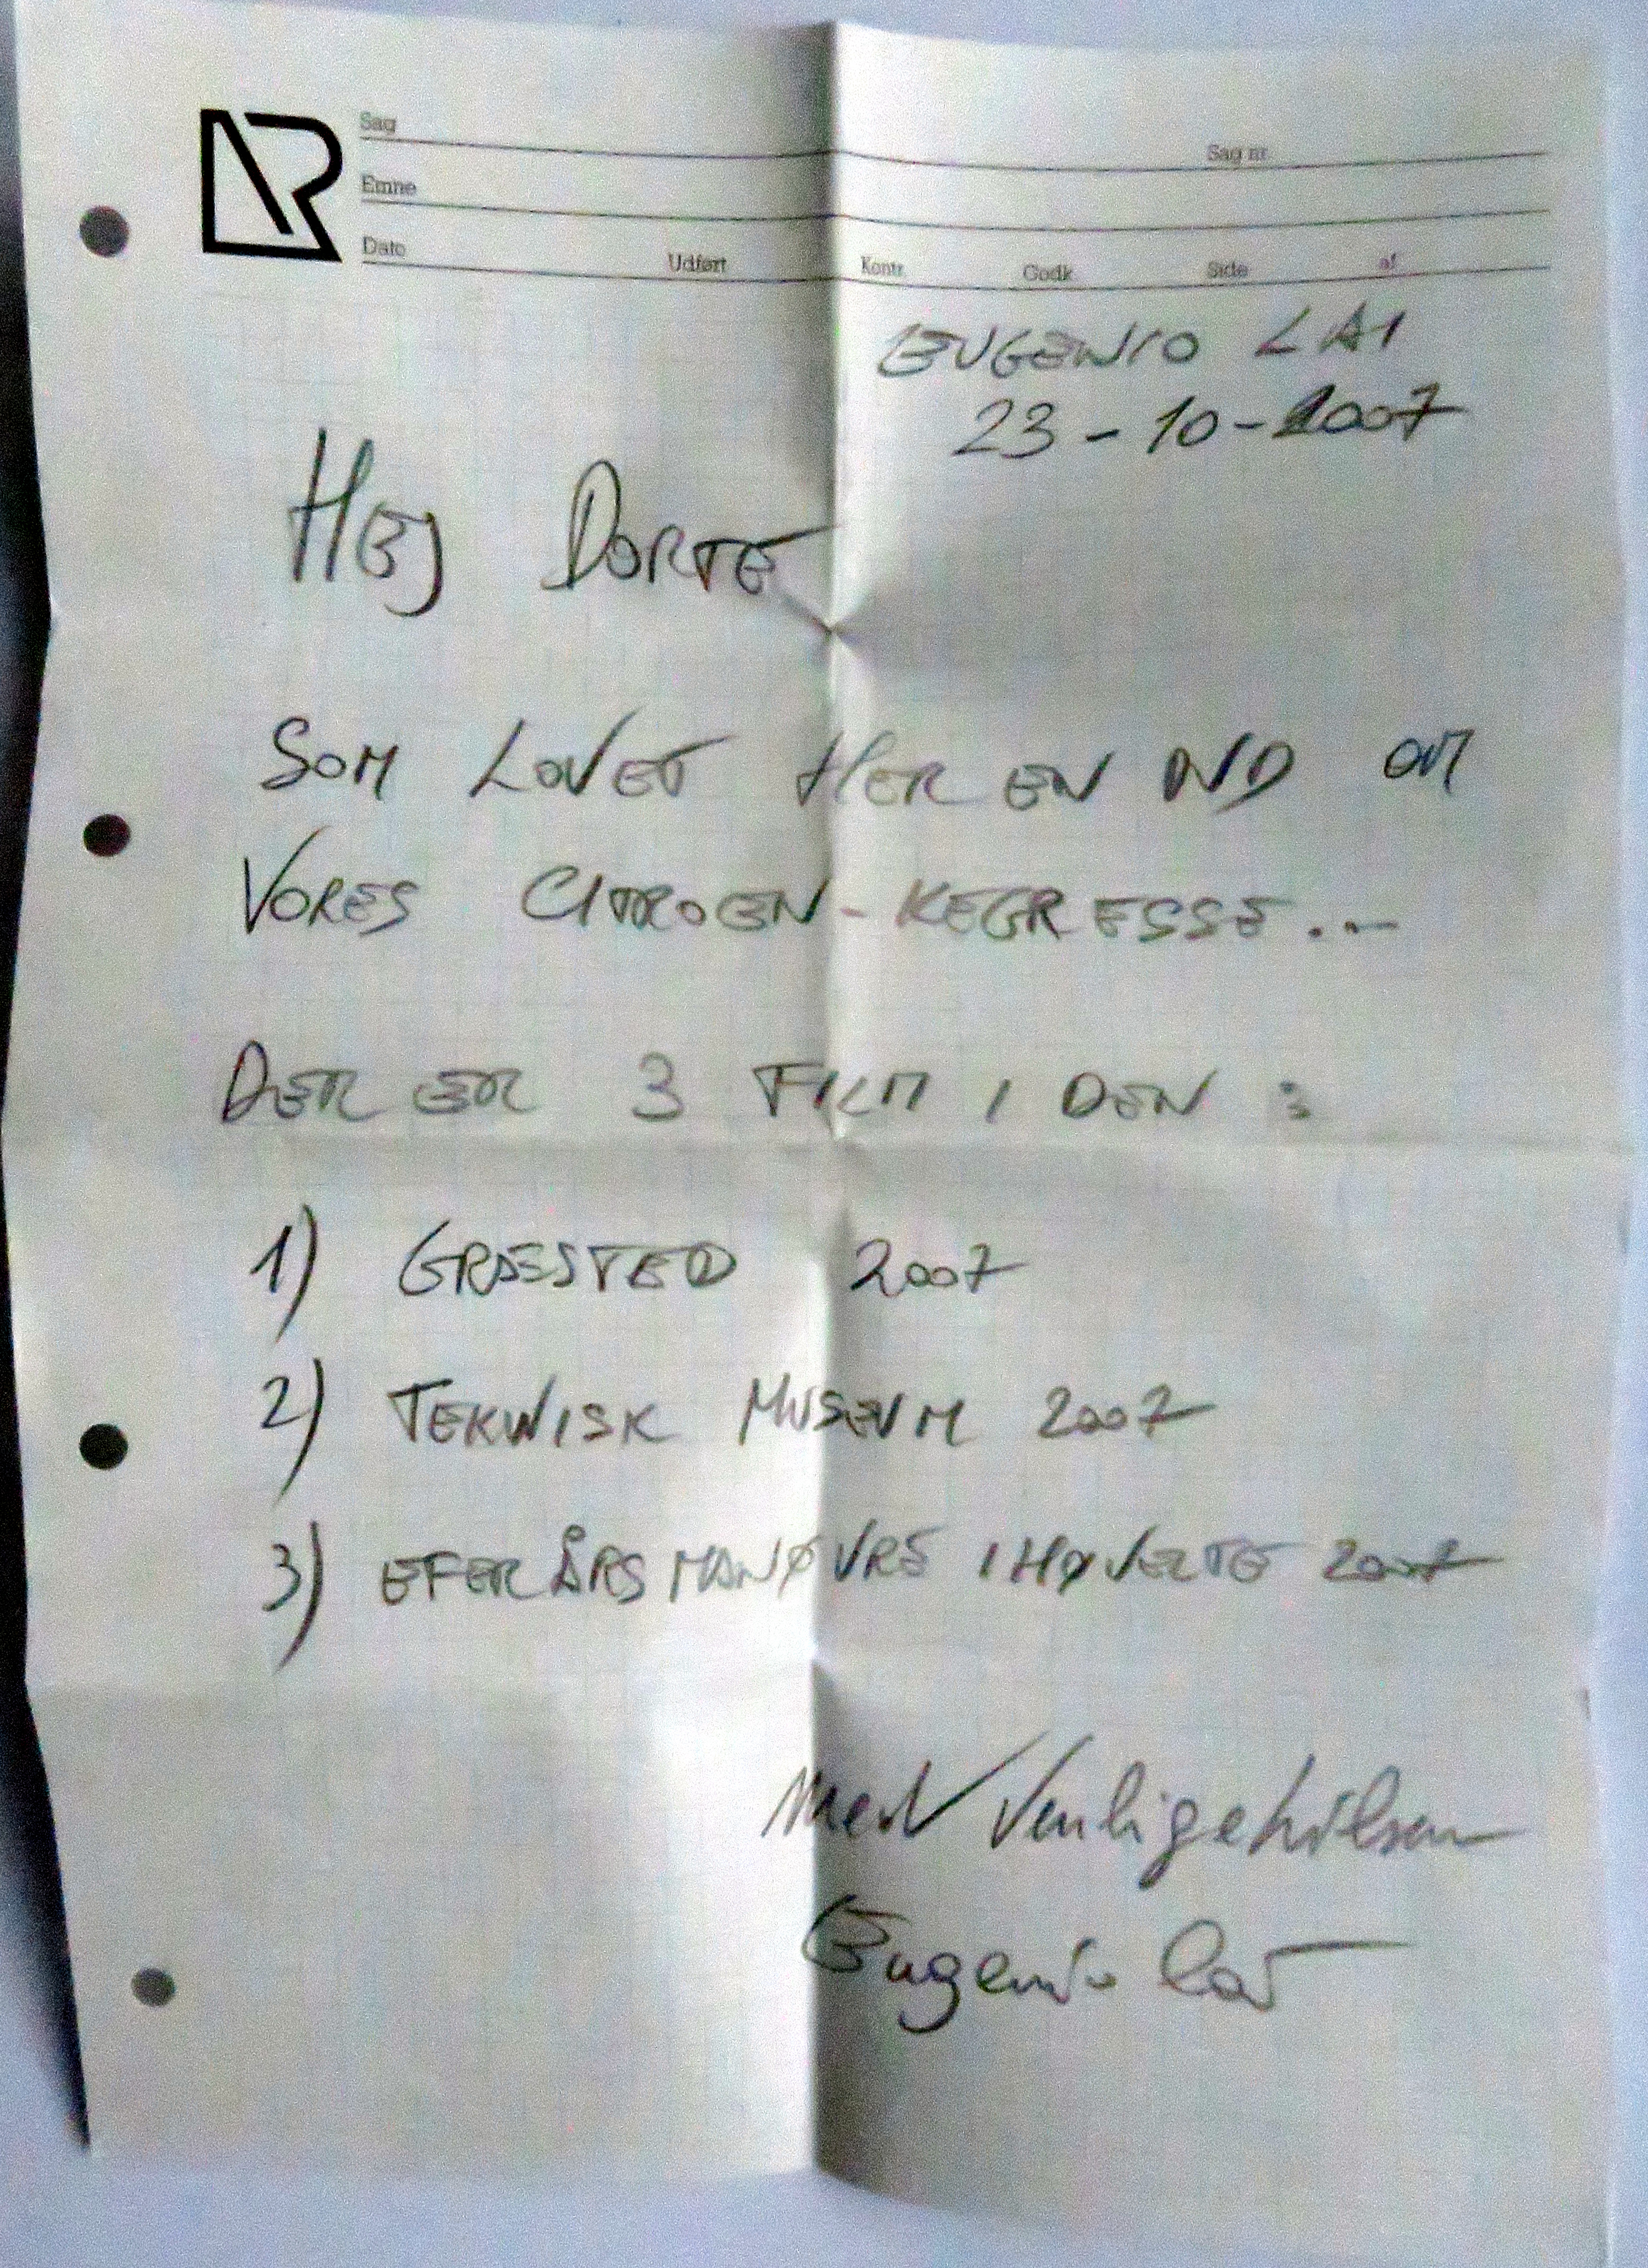 Sag
Sag nr.
Emne
Dato Udført Kontr. Godk. Side af
EUGENIO LAI
23-10-2007
HEJ DORTE
SOM LOVET HER EN DVD OM
VORES CITROEN-KEGRESSE...
DER ER 3 FILM I DEN :
1) GRÆSTED 2007
2) TEKNISK MUSEUM 2007
3) EFERÅRSMANØVRE I HØVELTE 2007
Med Venlige hilsen
Eugenio Lai